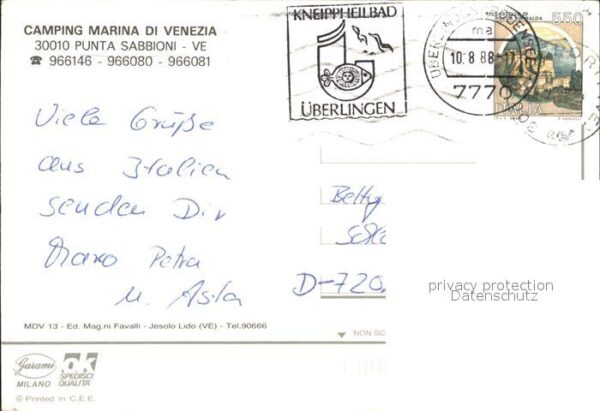 CAMPING MARINA DI VENEZIA
30010 PUNTA SABBIONI - VE
☎ 966146 - 966080 - 966081
KNEIPPHEILBAD
ÜBERLINGEN
10.8.88-17
7770
550
ITALIA
Viele Grüße
aus Italien
senden Dir
Petra
u. Asta
Betty
D-720
privacy protection
Datenschutz
MDV 13 - Ed. Mag.ni Favalli - Jesolo Lido (VE) - Tel.90666
NON SC
Garami
MILANO
ok
SPEDISCI
QUALITA'
© Printed in C.E.E.